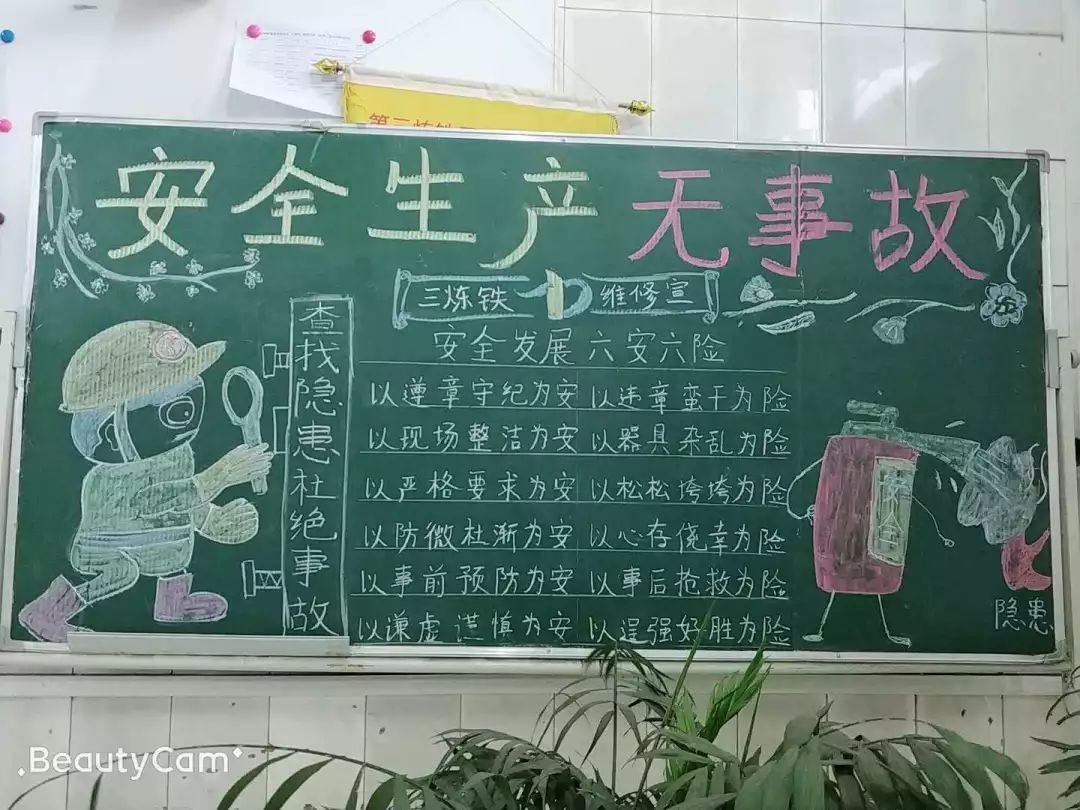 安全生产无事故
三炼铁 维修宣
安全发展 六安六险
以遵章守纪为安 以违章蛮干为险
以现场整洁为安 以器具杂乱为险
以严格要求为安 以松松垮垮为险
以防微杜渐为安 以心存侥幸为险
以事前预防为安 以事后抢救为险
以谦虚谨慎为安 以逞强好胜为险
查找隐患杜绝事故
安全
隐患
BeautyCam